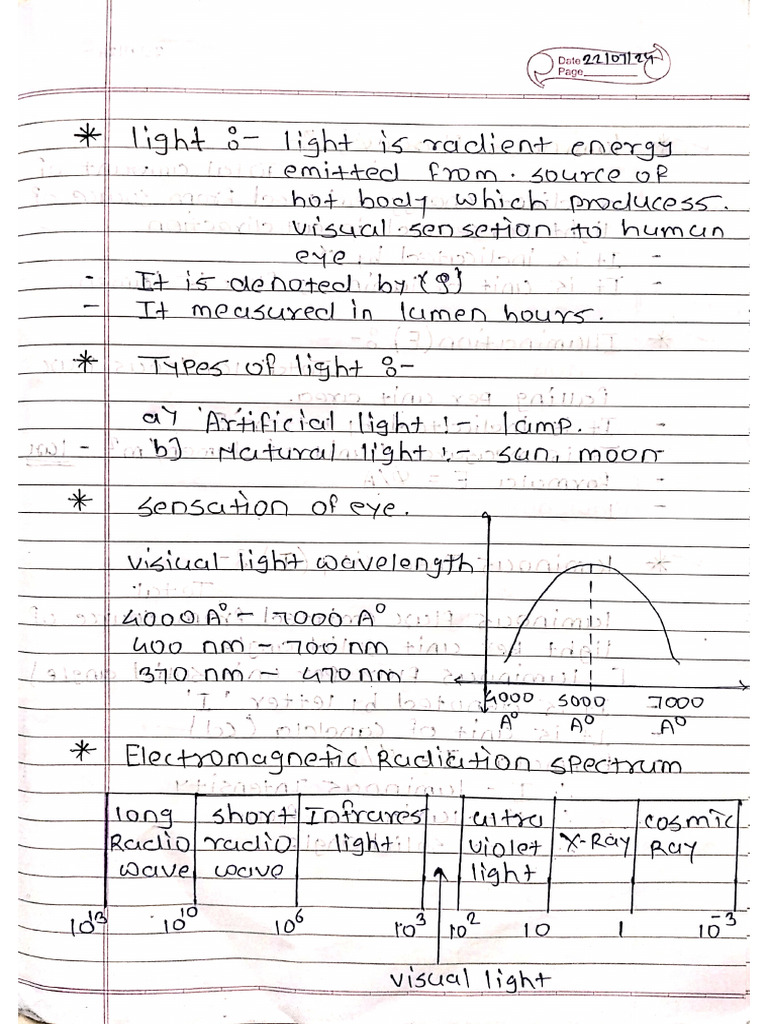 Date 22/07/24
Page
* light :- light is radient energy
emitted from. source of
hot body which producess.
visual sensetion to human
eye
- It is denoted by {φ}
- It measured in lumen hours.
* Types of light :-
a) Artificial light :- lamp.
- b) Natural light :- sun, moon
* sensation of eye.
visiual light wavelength
4000 A° - 7000 A°
400 nm - 700 nm
370 nm - 470 nm
4000 5000 7000
A° A° A°
* Electromagnetic Radiation spectrum
long short Infrares ultra cosmic
Radio radio light violet X-Ray Ray
wave wave light
10¹³ 10¹⁰ 10⁶ 10³ 10² 10 1 10⁻³
visual light